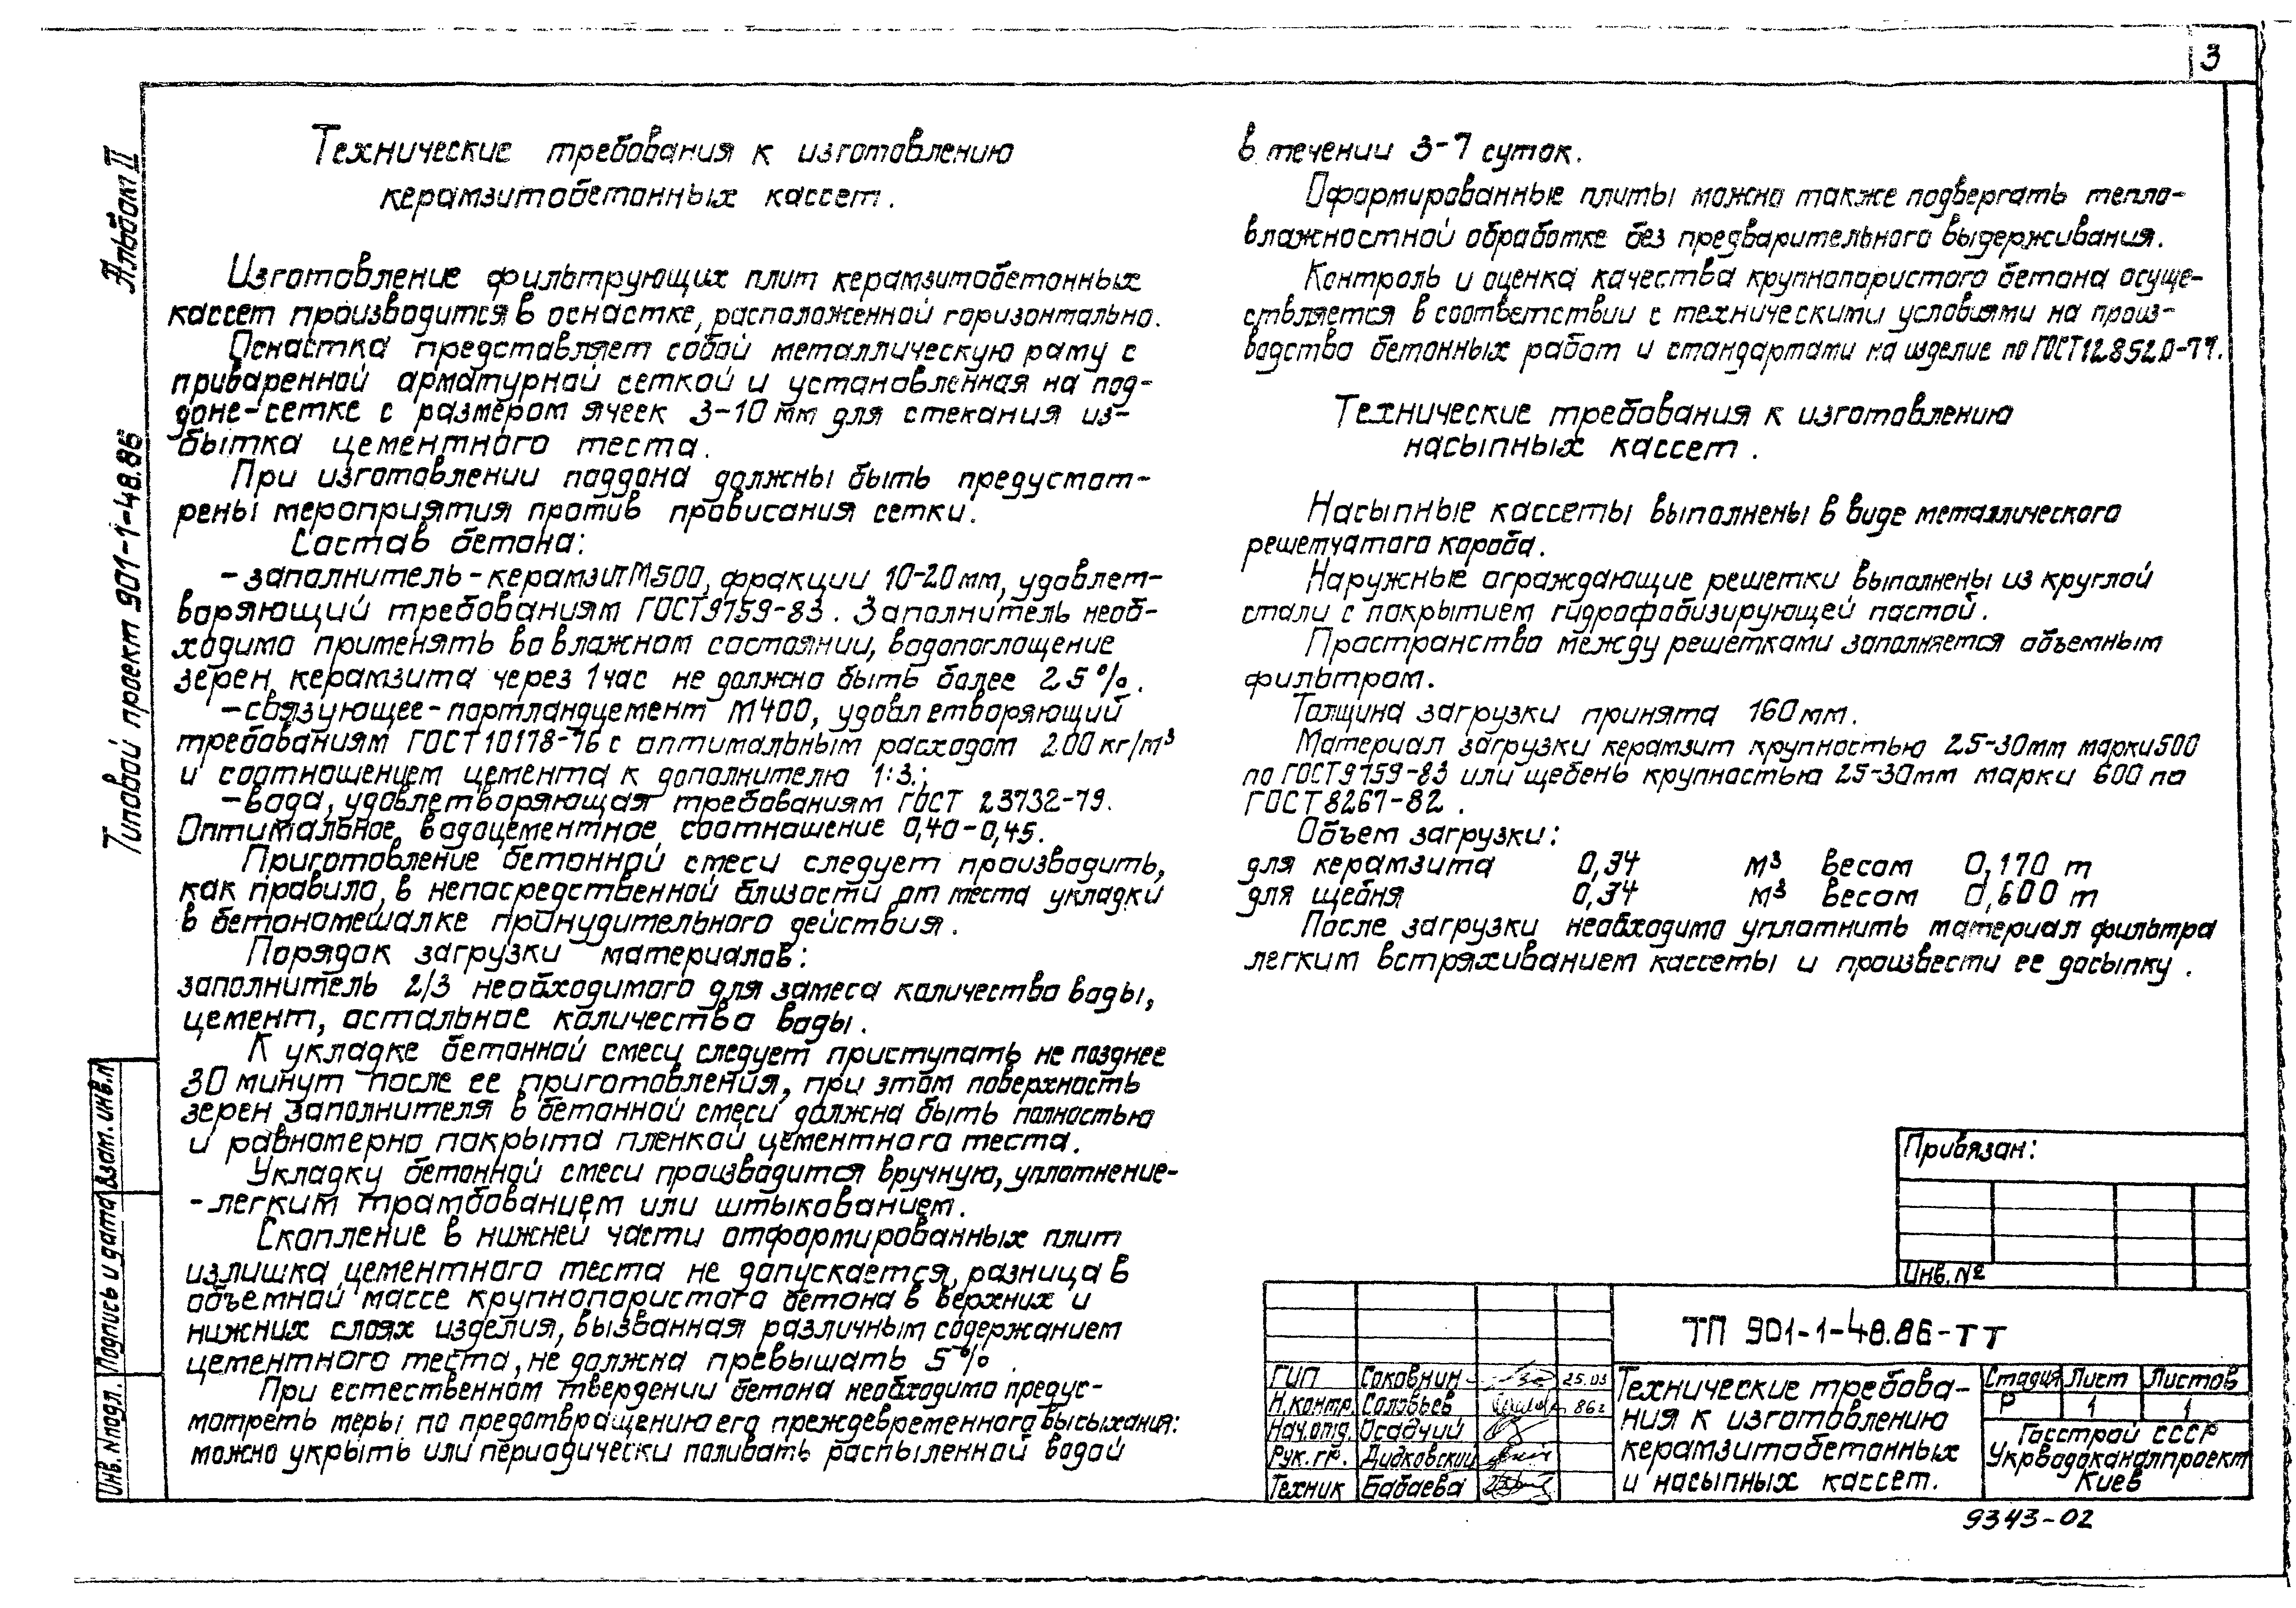 3
Альбом II
Типовой проект 901-1-48.86
Технические требования к изготовлению
керамзитобетонных кассет.
Изготовление фильтрующих плит керамзитобетонных
кассет производится в оснастке, расположенной горизонтально.
Оснастка представляет собой металлическую раму с
приваренной арматурной сеткой и установленная на под-
доне-сетке с размером ячеек 3-10 мм для стекания из-
бытка цементного теста.
При изготовлении поддона должны быть предусмот-
рены мероприятия против провисания сетки.
Состав бетона:
-заполнитель-керамзит М500, фракции 10-20мм, удовлет-
воряющий требованиям ГОСТ 9759-83. Заполнитель необ-
ходимо применять во влажном состоянии, водопоглощение
зерен керамзита через 1 час не должно быть более 25%.
-связующее-портландцемент М400, удовлетворяющий
требованиям ГОСТ 10178-76 с оптимальным расходом 200 кг/м³
и соотношением цемента к дополнителю 1:3.;
-вода, удовлетворяющая требованиям ГОСТ 23732-79.
Оптимальное водоцементное соотношение 0,40-0,45.
Приготовление бетонной смеси следует производить,
как правило, в непосредственной близости от места укладки
в бетономешалке принудительного действия.
Порядок загрузки материалов:
заполнитель 2/3 необходимого для замеса количества воды,
цемент, остальное количество воды.
К укладке бетонной смеси следует приступать не позднее
30 минут после ее приготовления, при этом поверхность
зерен заполнителя в бетонной смеси должна быть полностью
и равномерно покрыта пленкой цементного теста.
Укладку бетонной смеси производится вручную, уплотнение-
-легким трамбованием или штыкованием.
Скопление в нижней части отформированных плит
излишка цементного теста не допускается, разница в
объемной массе крупнопористого бетона в верхних и
нижних слоях изделия, вызванная различным содержанием
цементного теста, не должна превышать 5%.
При естественном твердении бетона необходимо предус-
мотреть меры по предотвращению его преждевременного высыхания:
можно укрыть или периодически поливать распыленной водой
в течении 3-7 суток.
Оформированные плиты можно также подвергать тепло-
влажностной обработке без предварительного выдерживания.
Контроль и оценка качества крупнопористого бетона осуще-
ствляется в соответствии с техническими условиями на произ-
водство бетонных работ и стандартами на изделие по ГОСТ 12.852.0-77.
Технические требования к изготовлению
насыпных кассет.
Насыпные кассеты выполнены в виде металлического
решетчатого короба.
Наружные ограждающие решетки выполнены из круглой
стали с покрытием гидрофобизирующей пастой.
Пространство между решетками заполняется объемным
фильтром.
Толщина загрузки принята 160 мм.
Материал загрузки керамзит крупностью 25-30мм марки 500
по ГОСТ 9759-83 или щебень крупностью 25-30мм марки 600 по
ГОСТ 8267-82.
Объем загрузки:
для керамзита 0,34 м³ весом 0,170 т
для щебня 0,34 м³ весом 0,600 т
После загрузки необходимо уплотнить материал фильтра
легким встряхиванием кассеты и произвести ее досыпку.
Взам. инв. №
Подпись и дата
Инв. № подл.
Привязан:
Инв. №
ТП 901-1-48.86-ТТ
ГИП Соковнин 25.03
Н.контр. Соловьев 86г
Нач.отд. Осадчий
Рук.гр. Дидковский
Техник Бабаева
Технические требова-
ния к изготовлению
керамзитобетонных
и насыпных кассет.
Стадия Лист Листов
Р 1 1
Госстрой СССР
Укрводоканалпроект
Киев
9343-02